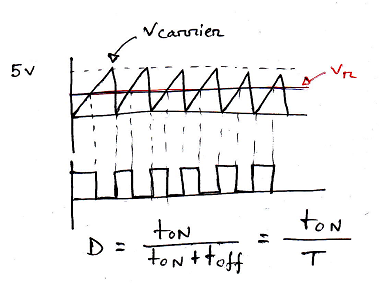 Vcarrier
5V
Vr
D = tON / tON + toff = tON / T